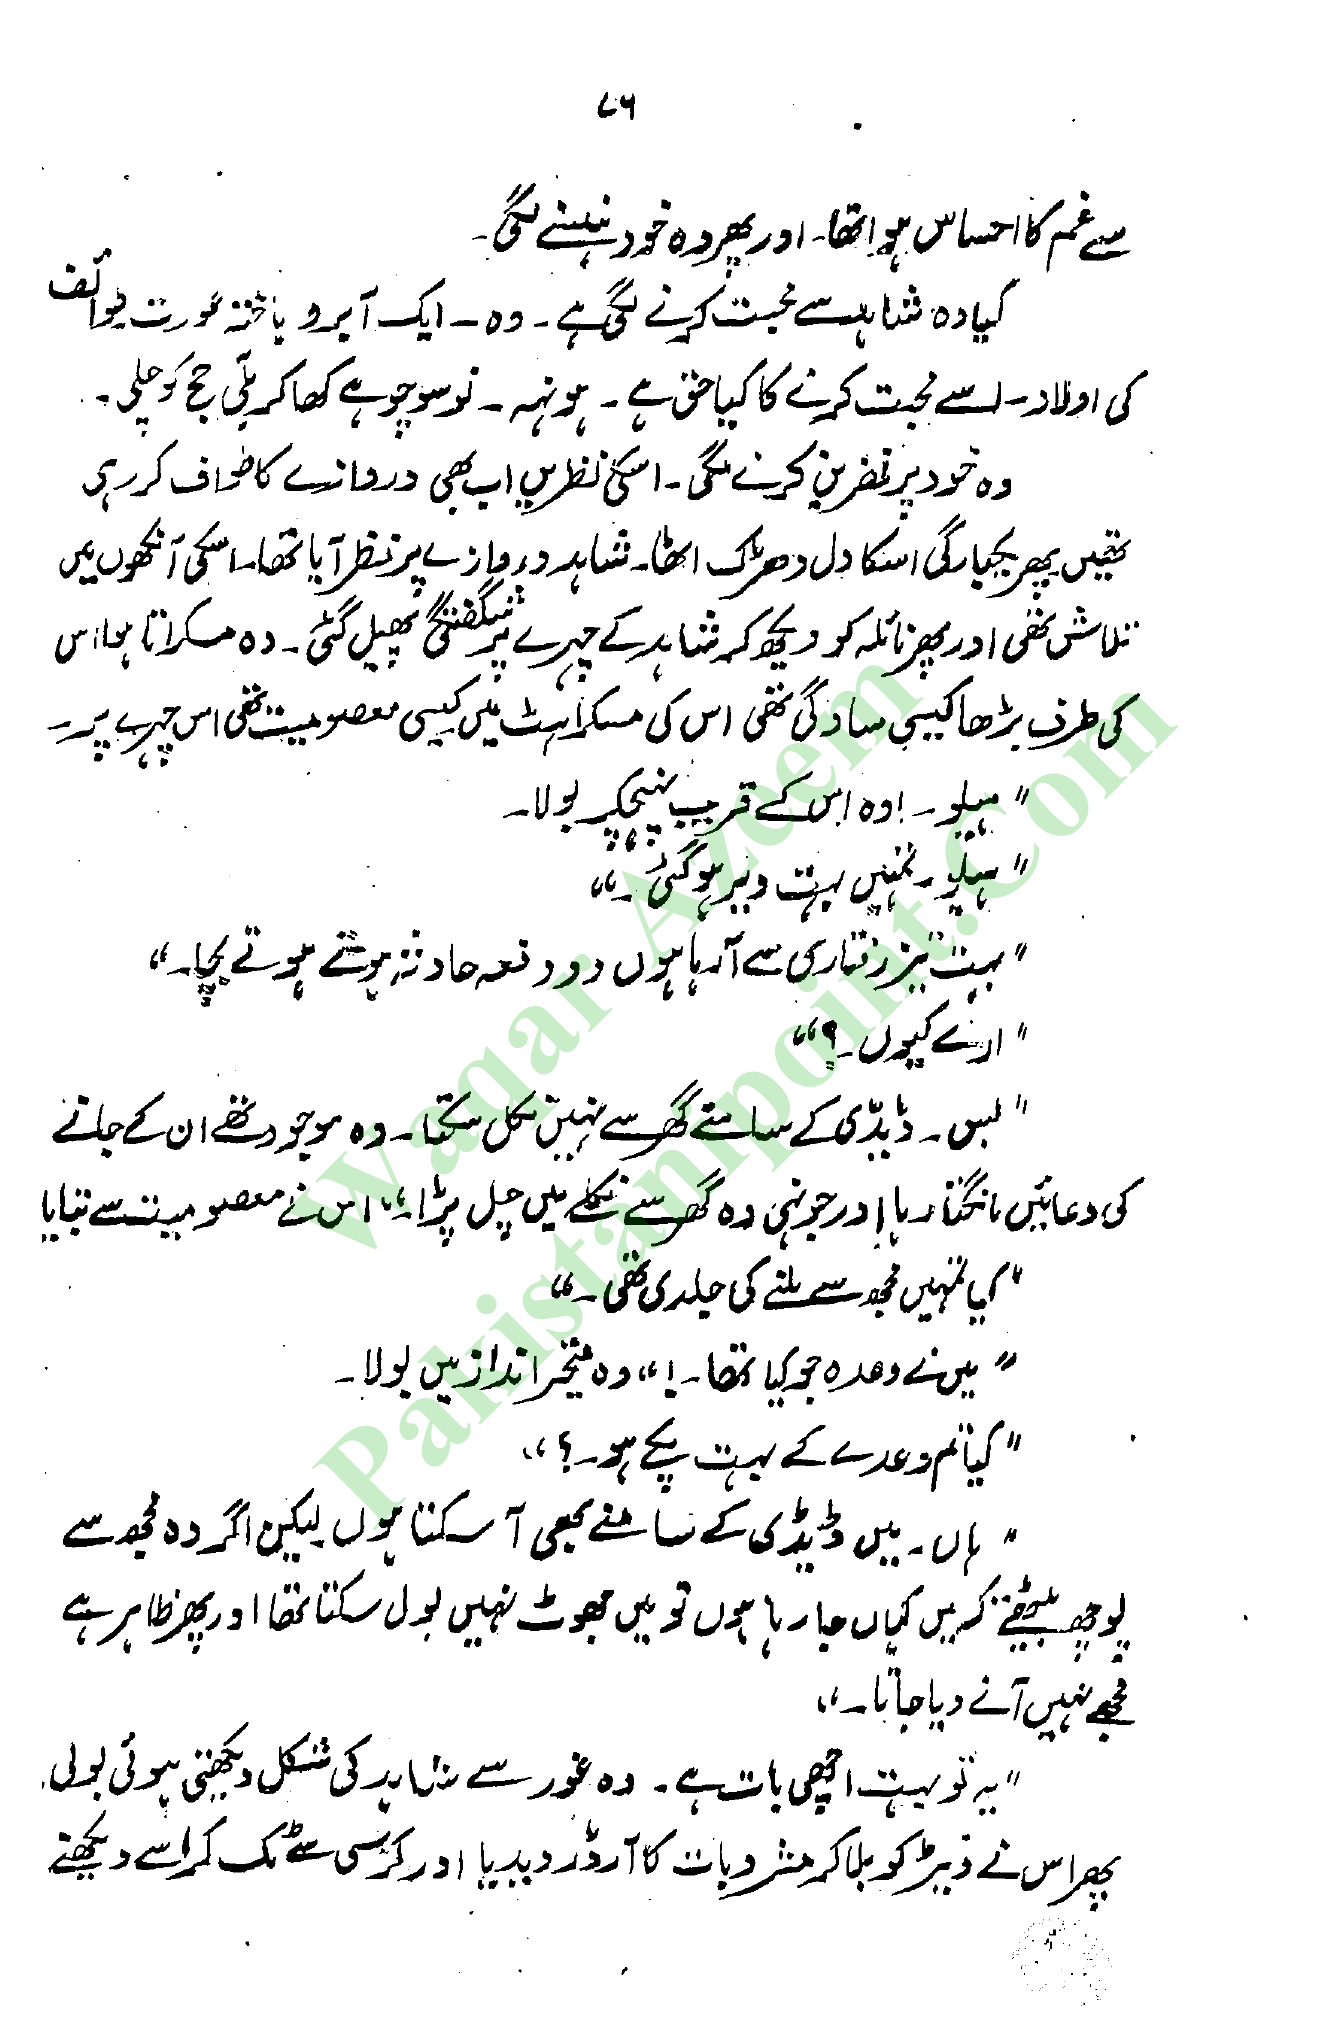 ۷۶
سے غم کا احساس ہوا تھا۔ اور پھر وہ خود ہنسنے لگی۔
کیا وہ شاہد سے محبت کرنے لگی ہے۔ وہ۔ ایک آبرو باختہ عورت طوائف
کی اولاد۔ اسے محبت کرنے کا کیا حق ہے۔ ہونہہ۔ نو سو چوہے کھا کر بلّی حج کو چلی۔
وہ خود پر نفرین کرنے لگی۔ اسکی نظریں اب بھی دروازے کا طواف کر رہی
تھیں پھر یکبارگی اسکا دل دھڑک اٹھا۔ شاہد دروازے پر نظر آیا تھا۔ اسکی آنکھوں میں
تلاش تھی اور پھر نائلہ کو دیکھ کر شاہد کے چہرے پر شگفتگی پھیل گئی۔ وہ مسکراتا ہوا اس
کی طرف بڑھا کیسی سادگی تھی اس کی مسکراہٹ میں کیسی معصومیت تھی اس چہرے پر۔
"ہیلو۔! وہ اس کے قریب پہنچکر بولا۔
"ہیلو۔ تمہیں بہت دیر ہو گئی۔"
"بہت تیز رفتاری سے آ رہا ہوں دو دفعہ حادثہ ہوتے ہوتے بچا۔"
"ارے کیوں۔؟"
"بس۔ ڈیڈی کے سامنے گھر سے نہیں نکل سکتا۔ وہ موجود تھے ان کے جانے
کی دعائیں مانگتا رہا اور جونہی وہ گھر سے نکلے میں چل پڑا۔" اس نے معصومیت سے بتایا
"کیا تمہیں مجھ سے ملنے کی جلدی تھی۔"
"میں نے وعدہ جو کیا تھا۔!" وہ متحیر انداز میں بولا۔
"کیا تم وعدے کے بہت پکے ہو۔؟"
"ہاں۔ میں ڈیڈی کے سامنے بھی آ سکتا ہوں لیکن اگر وہ مجھ سے
پوچھ بیٹھتے کہ میں کہاں جا رہا ہوں تو میں جھوٹ نہیں بول سکتا تھا اور پھر ظاہر ہے
مجھے نہیں آنے دیا جاتا۔"
"یہ تو بہت اچھی بات ہے۔ وہ غور سے شاہد کی شکل دیکھتی ہوئی بولی۔
پھر اس نے ویٹر کو بلا کر مشروبات کا آرڈر دیدیا اور کرسی سے ٹک کر اسے دیکھنے
Waqar Azeem
Pakistanipoint.Com